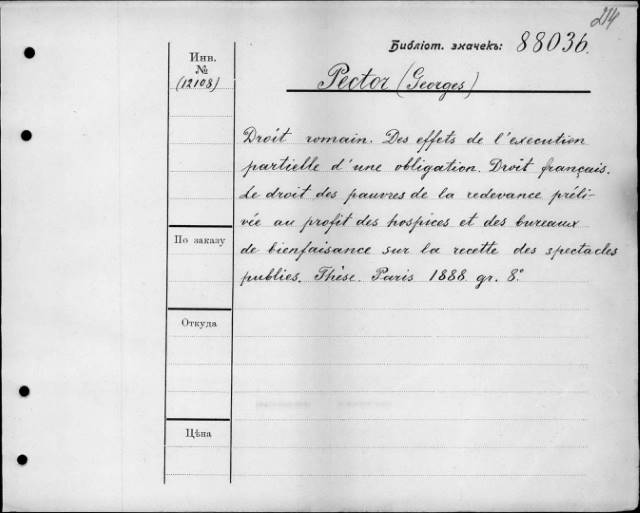 214
Библіот. значекъ: 88036.
Инв.
№
(12108)
Pector (Georges)
Droit romain. Des effets de l'execution
partielle d'une obligation. Droit français.
Le droit des pauvres de la redevance préli-
vée au profit des hospices et des bureaux
de bienfaisance sur la recette des spectacles
publies. Thèse. Paris 1888 gr. 8°
По заказу
Откуда
Цѣна